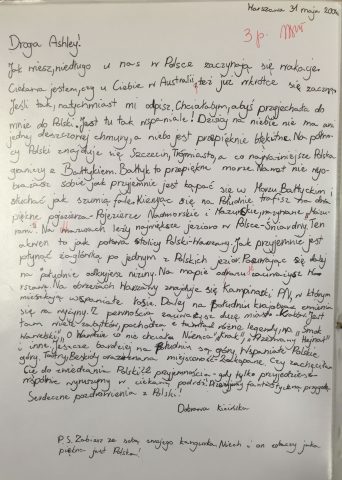 Warszawa 31 maja 200
3 p.
Droga Ashley!
Jak wiesz, niedługo u nas w Polsce zaczynają się wakacje.
Ciekawa jestem, czy u Ciebie w Australii, też już wkrótce się zaczną.
Jeśli tak, natychmiast mi odpisz. Chciałabym, abyś przyjechała do
mnie do Polski. Jest tu tak wspaniale! Dzisiaj na niebie nie ma ani
jednej deszczowej chmury, a niebo jest przepięknie błękitne. Na półno-
cy Polski znajduje się Szczecin, Trójmiasto, a co najważniejsze Polska
graniczy z Bałtykiem. Bałtyk to przepiękne morze. Nawet nie wyo-
brażasz sobie jak przyjemnie jest kąpać się w Morzu Bałtyckim i
słuchać jak szumią fale. Kierując się na Południe trafisz na
piękne pojezierza - Pojezierze Nadmorskie i
Na Mazurach leży największe jezioro w Polsce - Śniardwy. Ten
akwen to jak połowa stolicy Polski - Warszawy. Jak przyjemnie jest
płynąć żaglówką po jednym z Polskich jezior. Posuwając się dalej
na południe odkryjesz niziny. Na mapie
Na obrzeżach Warszawy znajduje się Kampinoski P.N, w którym
mieszkają wspaniałe łosie. Dalej na południu krajobraz zmienia
się na wyżyny. Z pewnością zauważysz duże miasto - Kraków. Jest
tam wiele zabytków, pochodzą z różne legendy, np. "Smok
Wawelski", "O Wandzie co nie chciała Niemca", "Hejnał"
i inne. Jeszcze bardziej na południe są góry. Wspaniałe Polskie
góry, Tatry, Beskidy oraz miejscowość - Zakopane. Czy zachęciłam
Cię do zwiedzania Polski? Z przyjemnością - gdy tylko przyjedziesz
wspólnie wyruszymy w ciekawą podróż. fantastyczną przygodę.
Serdeczne pozdrowienia z Polski!
Dobrawa
P.S. Zabierz ze sobą swojego kangurka. Niech i on zobaczy jaka
piękna jest Polska!